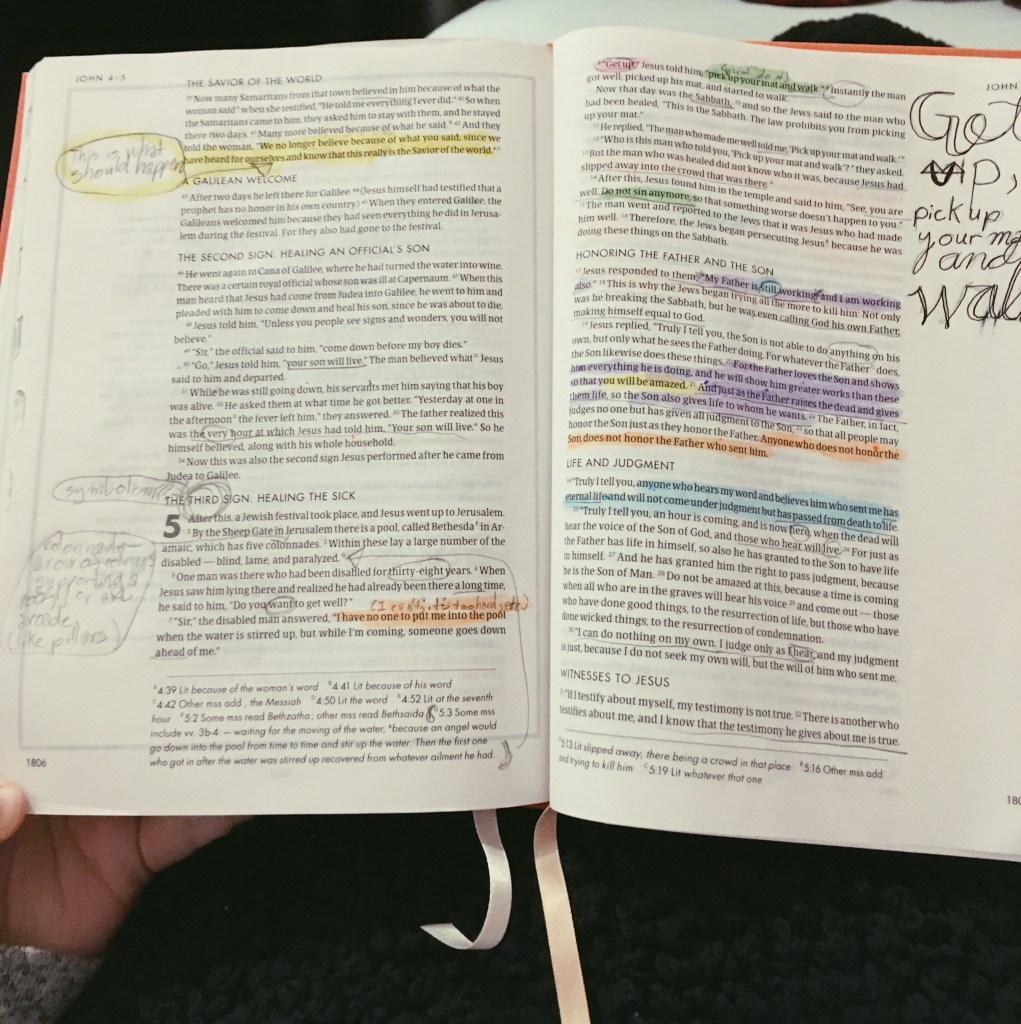 JOHN 4–5
THE SAVIOR OF THE WORLD
39 Now many Samaritans from that town believed in him because of what the
woman said A when she testified, "He told me everything I ever did." 40 So when
the Samaritans came to him, they asked him to stay with them, and he stayed
there two days. 41 Many more believed because of what he said. B 42 And they
told the woman, "We no longer believe because of what you said, since we
have heard for ourselves and know that this really is the Savior of the world." C
This is what
should happen
A GALILEAN WELCOME
43 After two days he left there for Galilee. 44 (Jesus himself had testified that a
prophet has no honor in his own country.) 45 When they entered Galilee, the
Galileans welcomed him because they had seen everything he did in Jerusa-
lem during the festival. For they also had gone to the festival.
THE SECOND SIGN: HEALING AN OFFICIAL'S SON
46 He went again to Cana of Galilee, where he had turned the water into wine.
There was a certain royal official whose son was ill at Capernaum. 47 When this
man heard that Jesus had come from Judea into Galilee, he went to him and
pleaded with him to come down and heal his son, since he was about to die.
48 Jesus told him, "Unless you people see signs and wonders, you will not
believe."
49 "Sir," the official said to him, "come down before my boy dies."
50 "Go," Jesus told him, "your son will live." The man believed what D Jesus
said to him and departed.
51 While he was still going down, his servants met him saying that his boy
was alive. 52 He asked them at what time he got better. "Yesterday at one in
the afternoon E the fever left him," they answered. 53 The father realized this
was the very hour at which Jesus had told him, "Your son will live." So he
himself believed, along with his whole household.
54 Now this was also the second sign Jesus performed after he came from
Judea to Galilee.
symbolism
THE THIRD SIGN: HEALING THE SICK
5 After this, a Jewish festival took place, and Jesus went up to Jerusalem.
2 By the Sheep Gate in Jerusalem there is a pool, called Bethesda F in Ar-
amaic, which has five colonnades. 3 Within these lay a large number of the
disabled — blind, lame, and paralyzed. G
5 One man was there who had been disabled for thirty-eight years. 6 When
Jesus saw him lying there and realized he had already been there a long time,
he said to him, "Do you want to get well?"
7 "Sir," the disabled man answered, "I have no one to put me into the pool
when the water is stirred up, but while I'm coming, someone goes down
ahead of me."
colonnady—
a row of
supporting a
roof, or
arcade
(like pillars)
A 4:39 Lit because of the woman's word B 4:41 Lit because of his word
C 4:42 Other mss add , the Messiah D 4:50 Lit the word E 4:52 Lit at the seventh
hour F 5:2 Some mss read Bethzatha; other mss read Bethsaida G 5:3 Some mss
include vv. 3b-4: — waiting for the moving of the water, 4 because an angel would
go down into the pool from time to time and stir up the water. Then the first one
who got in after the water was stirred up recovered from whatever ailment he had.
1806
JOHN
8 "Get up," Jesus told him, "pick up your mat and walk." 9 Instantly the man
got well, picked up his mat, and started to walk.
Now that day was the Sabbath, 10 and so the Jews said to the man who
had been healed, "This is the Sabbath. The law prohibits you from picking
up your mat."
11 He replied, "The man who made me well told me, 'Pick up your mat and walk.'"
12 "Who is this man who told you, 'Pick up your mat and walk'?" they asked.
13 But the man who was healed did not know who it was, because Jesus had
slipped away into the crowd that was there. A
14 After this, Jesus found him in the temple and said to him, "See, you are
well. Do not sin anymore, so that something worse doesn't happen to you."
15 The man went and reported to the Jews that it was Jesus who had made
him well. 16 Therefore, the Jews began persecuting Jesus B because he was
doing these things on the Sabbath.
HONORING THE FATHER AND THE SON
17 Jesus responded to them, "My Father is still working, and I am working
also." 18 This is why the Jews began trying all the more to kill him: Not only
was he breaking the Sabbath, but he was even calling God his own Father,
making himself equal to God.
19 Jesus replied, "Truly I tell you, the Son is not able to do anything on his
own, but only what he sees the Father doing. For whatever the Father C does,
the Son likewise does these things. 20 For the Father loves the Son and shows
him everything he is doing, and he will show him greater works than these
so that you will be amazed. 21 And just as the Father raises the dead and gives
them life, so the Son also gives life to whom he wants. 22 The Father, in fact,
judges no one but has given all judgment to the Son, 23 so that all people may
honor the Son just as they honor the Father. Anyone who does not honor the
Son does not honor the Father who sent him.
LIFE AND JUDGMENT
24 "Truly I tell you, anyone who hears my word and believes him who sent me has
eternal life and will not come under judgment but has passed from death to life.
25 "Truly I tell you, an hour is coming, and is now here, when the dead will
hear the voice of the Son of God, and those who hear will live. 26 For just as
the Father has life in himself, so also he has granted to the Son to have life
in himself. 27 And he has granted him the right to pass judgment, because
he is the Son of Man. 28 Do not be amazed at this, because a time is coming
when all who are in the graves will hear his voice 29 and come out — those
who have done good things, to the resurrection of life, but those who have
done wicked things, to the resurrection of condemnation.
30 "I can do nothing on my own. I judge only as I hear, and my judgment
is just, because I do not seek my own will, but the will of him who sent me.
WITNESSES TO JESUS
31 "If I testify about myself, my testimony is not true. 32 There is another who
testifies about me, and I know that the testimony he gives about me is true.
A 5:13 Lit slipped away, there being a crowd in that place B 5:16 Other mss add
and trying to kill him C 5:19 Lit whatever that one
Get
up,
pick up
your ma
and
Wal
180